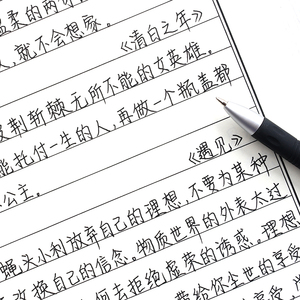 温柔的两
，就不会想家。
《清白之年》
披荆斩棘无所不能的女英雄。
能托付一生的人，再做一个瓶盖都
《遇见》
公主。
蝇头小利放弃自己的理想，不要为某种
改换自己的信念。物质世界的外表太过
何去拒绝虚荣的诱惑。理想
带给你尘世的享受